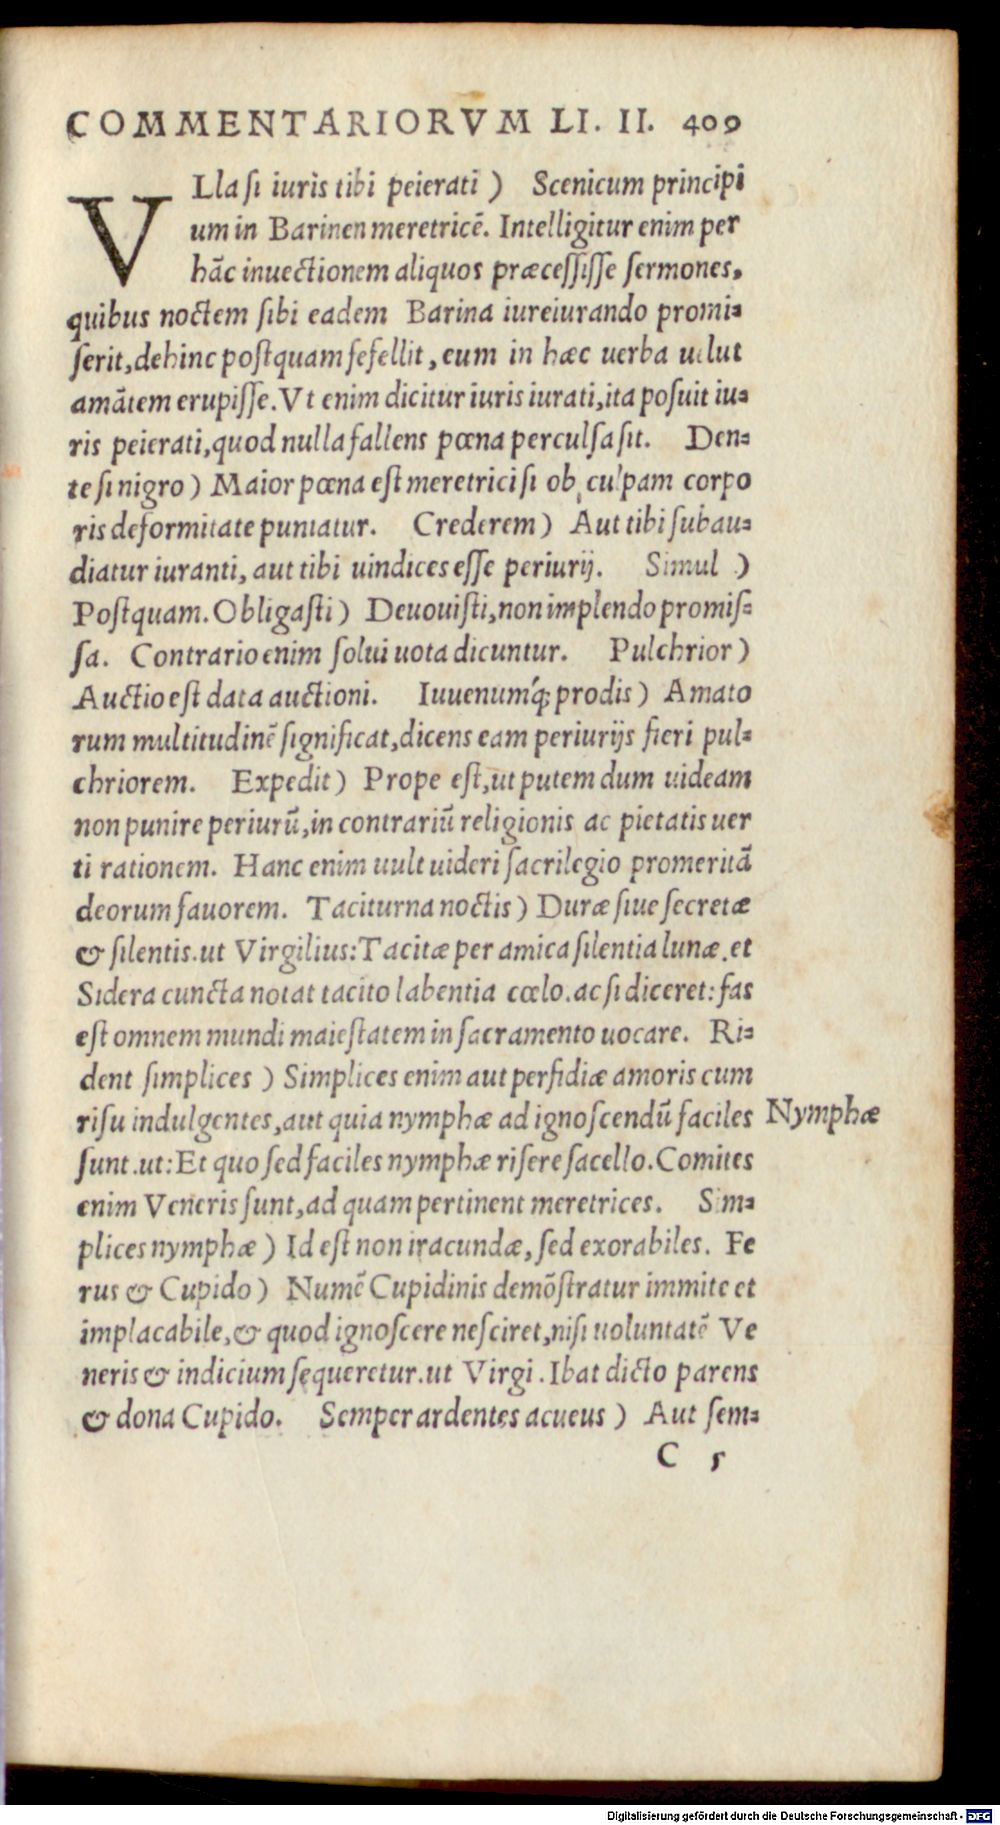 COMMENTARIORVM LI. II. 409
VLla si iuris tibi peierati) Scenicum principi
um in Barinen meretricē. Intelligitur enim per
hāc inuectionem aliquos præcessisse sermones,
quibus noctem sibi eadem Barina iureiurando promi⸗
serit, dehinc postquam fefellit, eum in hæc uerba uelut
amātem erupisse. Vt enim dicitur iuris iurati, ita posuit iu⸗
ris peierati, quod nulla fallens pœna perculsa sit. Den⸗
te si nigro) Maior pœna est meretrici si ob culpam corpo
ris deformitate puniatur. Crederem) Aut tibi subau⸗
diatur iuranti, aut tibi uindices esse periurij. Simul )
Postquam. Obligasti) Deuouisti, non implendo promis⸗
sa. Contrario enim solui uota dicuntur. Pulchrior)
Auctio est data auctioni. Iuuenumq́; prodis) Amato
rum multitudinē significat, dicens eam periurijs fieri pul⸗
chriorem. Expedit) Prope est, ut putem dum uideam
non punire periurū, in contrariū religionis ac pietatis uer
ti rationem. Hanc enim uult uideri sacrilegio promeritā
deorum fauorem. Taciturna noctis) Duræ siue secretæ
& silentis. ut Virgilius: Tacitæ per amica silentia lunæ. et
Sidera cuncta notat tacito labentia cœlo. ac si diceret: fas
est omnem mundi maiestatem in sacramento uocare. Ri⸗
dent simplices ) Simplices enim aut perfidiæ amoris cum
risu indulgentes, aut quia nymphæ ad ignoscendū faciles
Nymphæ
sunt. ut: Et quo sed faciles nymphæ risere sacello. Comites
enim Veneris sunt, ad quam pertinent meretrices. Sim⸗
plices nymphæ ) Id est non iracundæ, sed exorabiles. Fe
rus & Cupido) Numē Cupidinis demōstratur immite et
implacabile, & quod ignoscere nesciret, nisi uoluntatē Ve
neris & indicium sequeretur. ut Virgi. Ibat dicto parens
& dona Cupido. Semper ardentes acueus ) Aut sem⸗
C 5
Digitalisierung gefördert durch die Deutsche Forschungsgemeinschaft - DFG